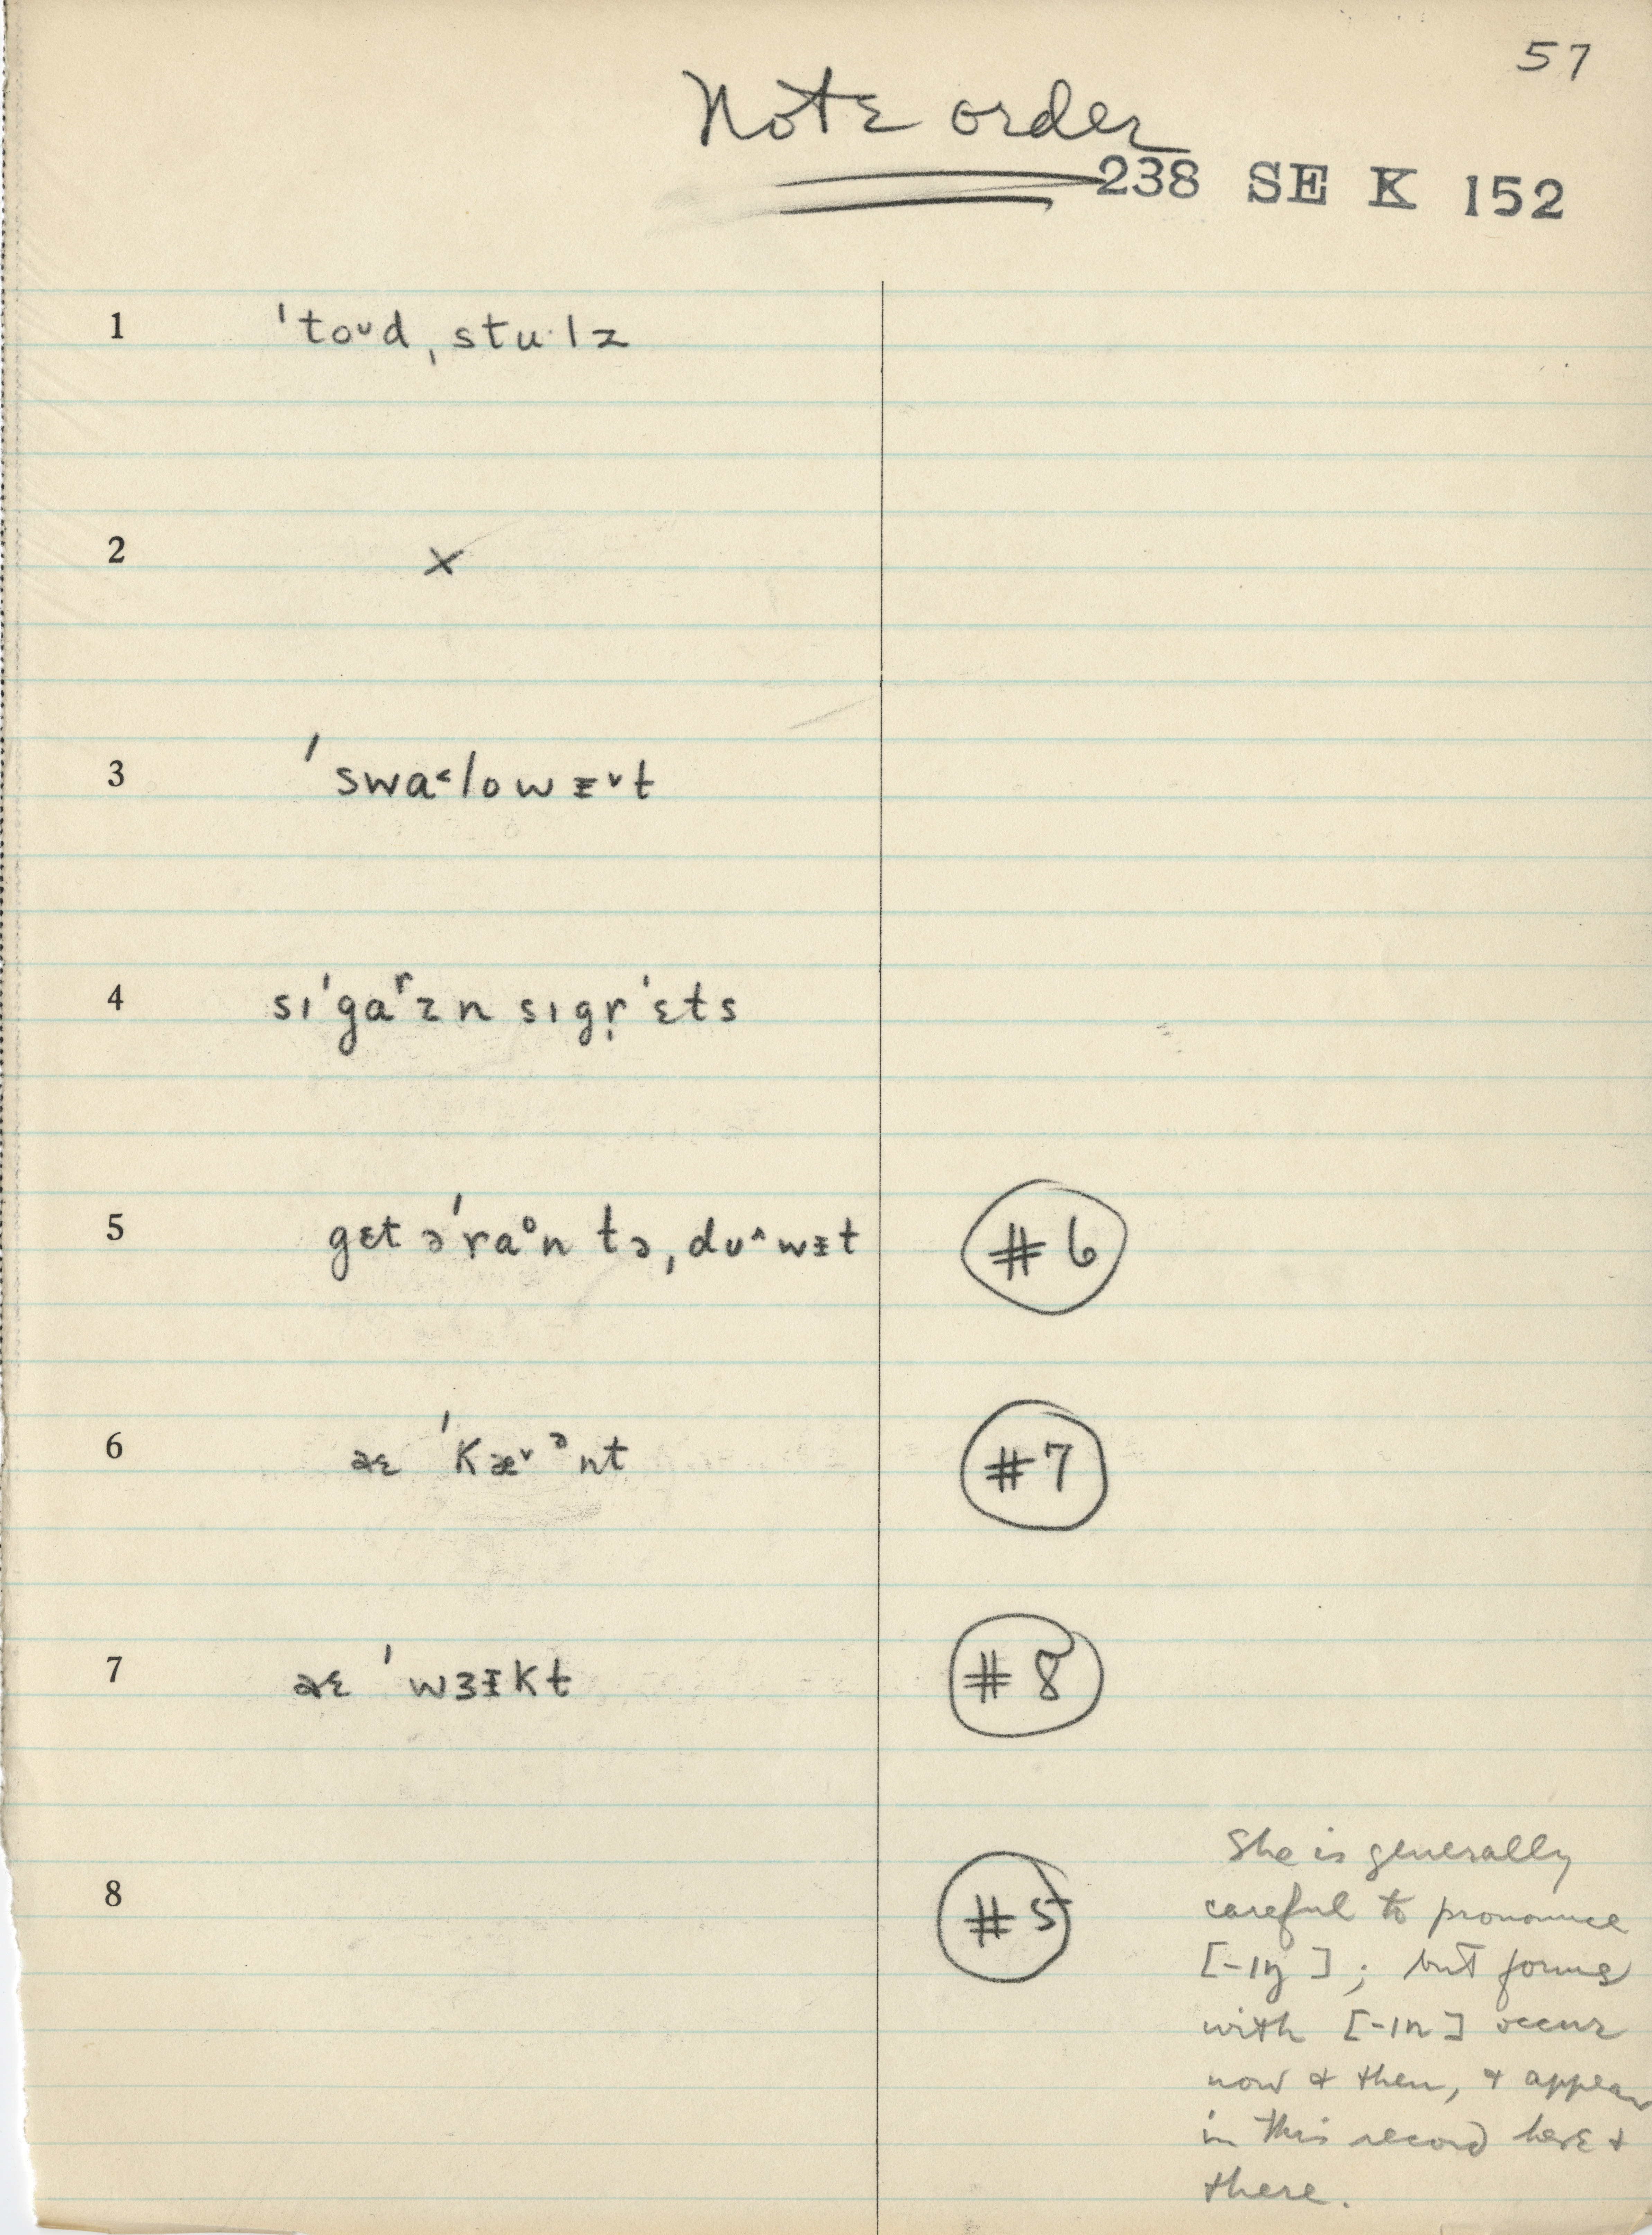 57
Note order
238 SE K 152
1 ˈtoᴜd ˌstu·lz
2 ×
3 ˈswɑ˂lowᵻ˅t
4 sɪˈgɑʳzn sɪgr̩ˈɛts
5 gɛt əˈraᵒn tə ˌdᴜ˄wᵻt #6
6 aɛ ˈkæ˅ᵊnt #7
7 aɛ ˈwɜᵻkt #8
8 #5
She is generally
careful to pronounce
[-ɪŋ]; but forms
with [-ɪn] occur
now & then, & appear
in this record here &
there.